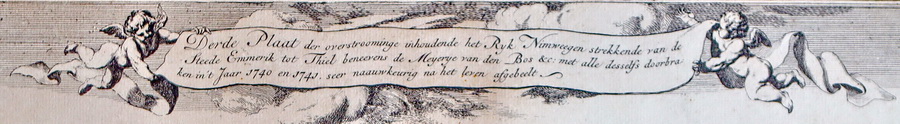 Derde Plaat der overstroominge inhoudende het Ryk Nimweegen strekkende van de
Steede Emmerik tot Thiel beneevens de Meyerye van den Bos &c: met alle desselfs doorbra
ken in't Jaar 1740 en 1741. seer naauwkeurig na het leven afgebeelt.